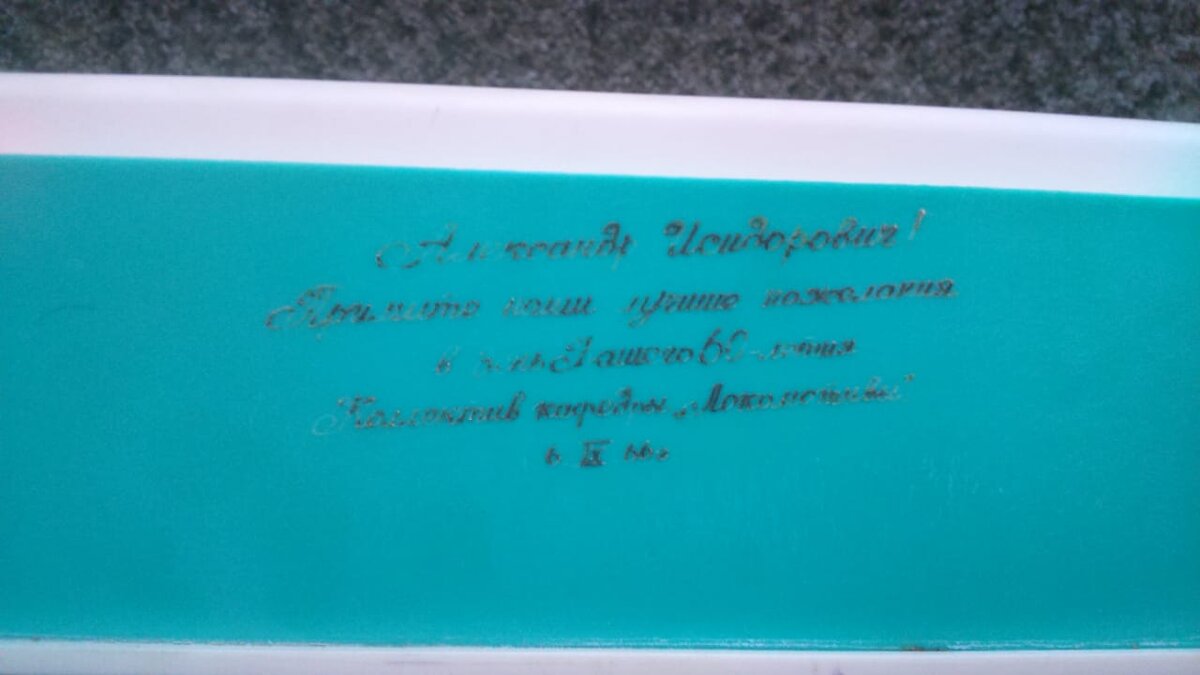 Александр Исидорович!
Примите наши лучшие пожелания
в день Вашего 60-летия
Коллектив кафедры „Локомотивы"
6 IX 66 г